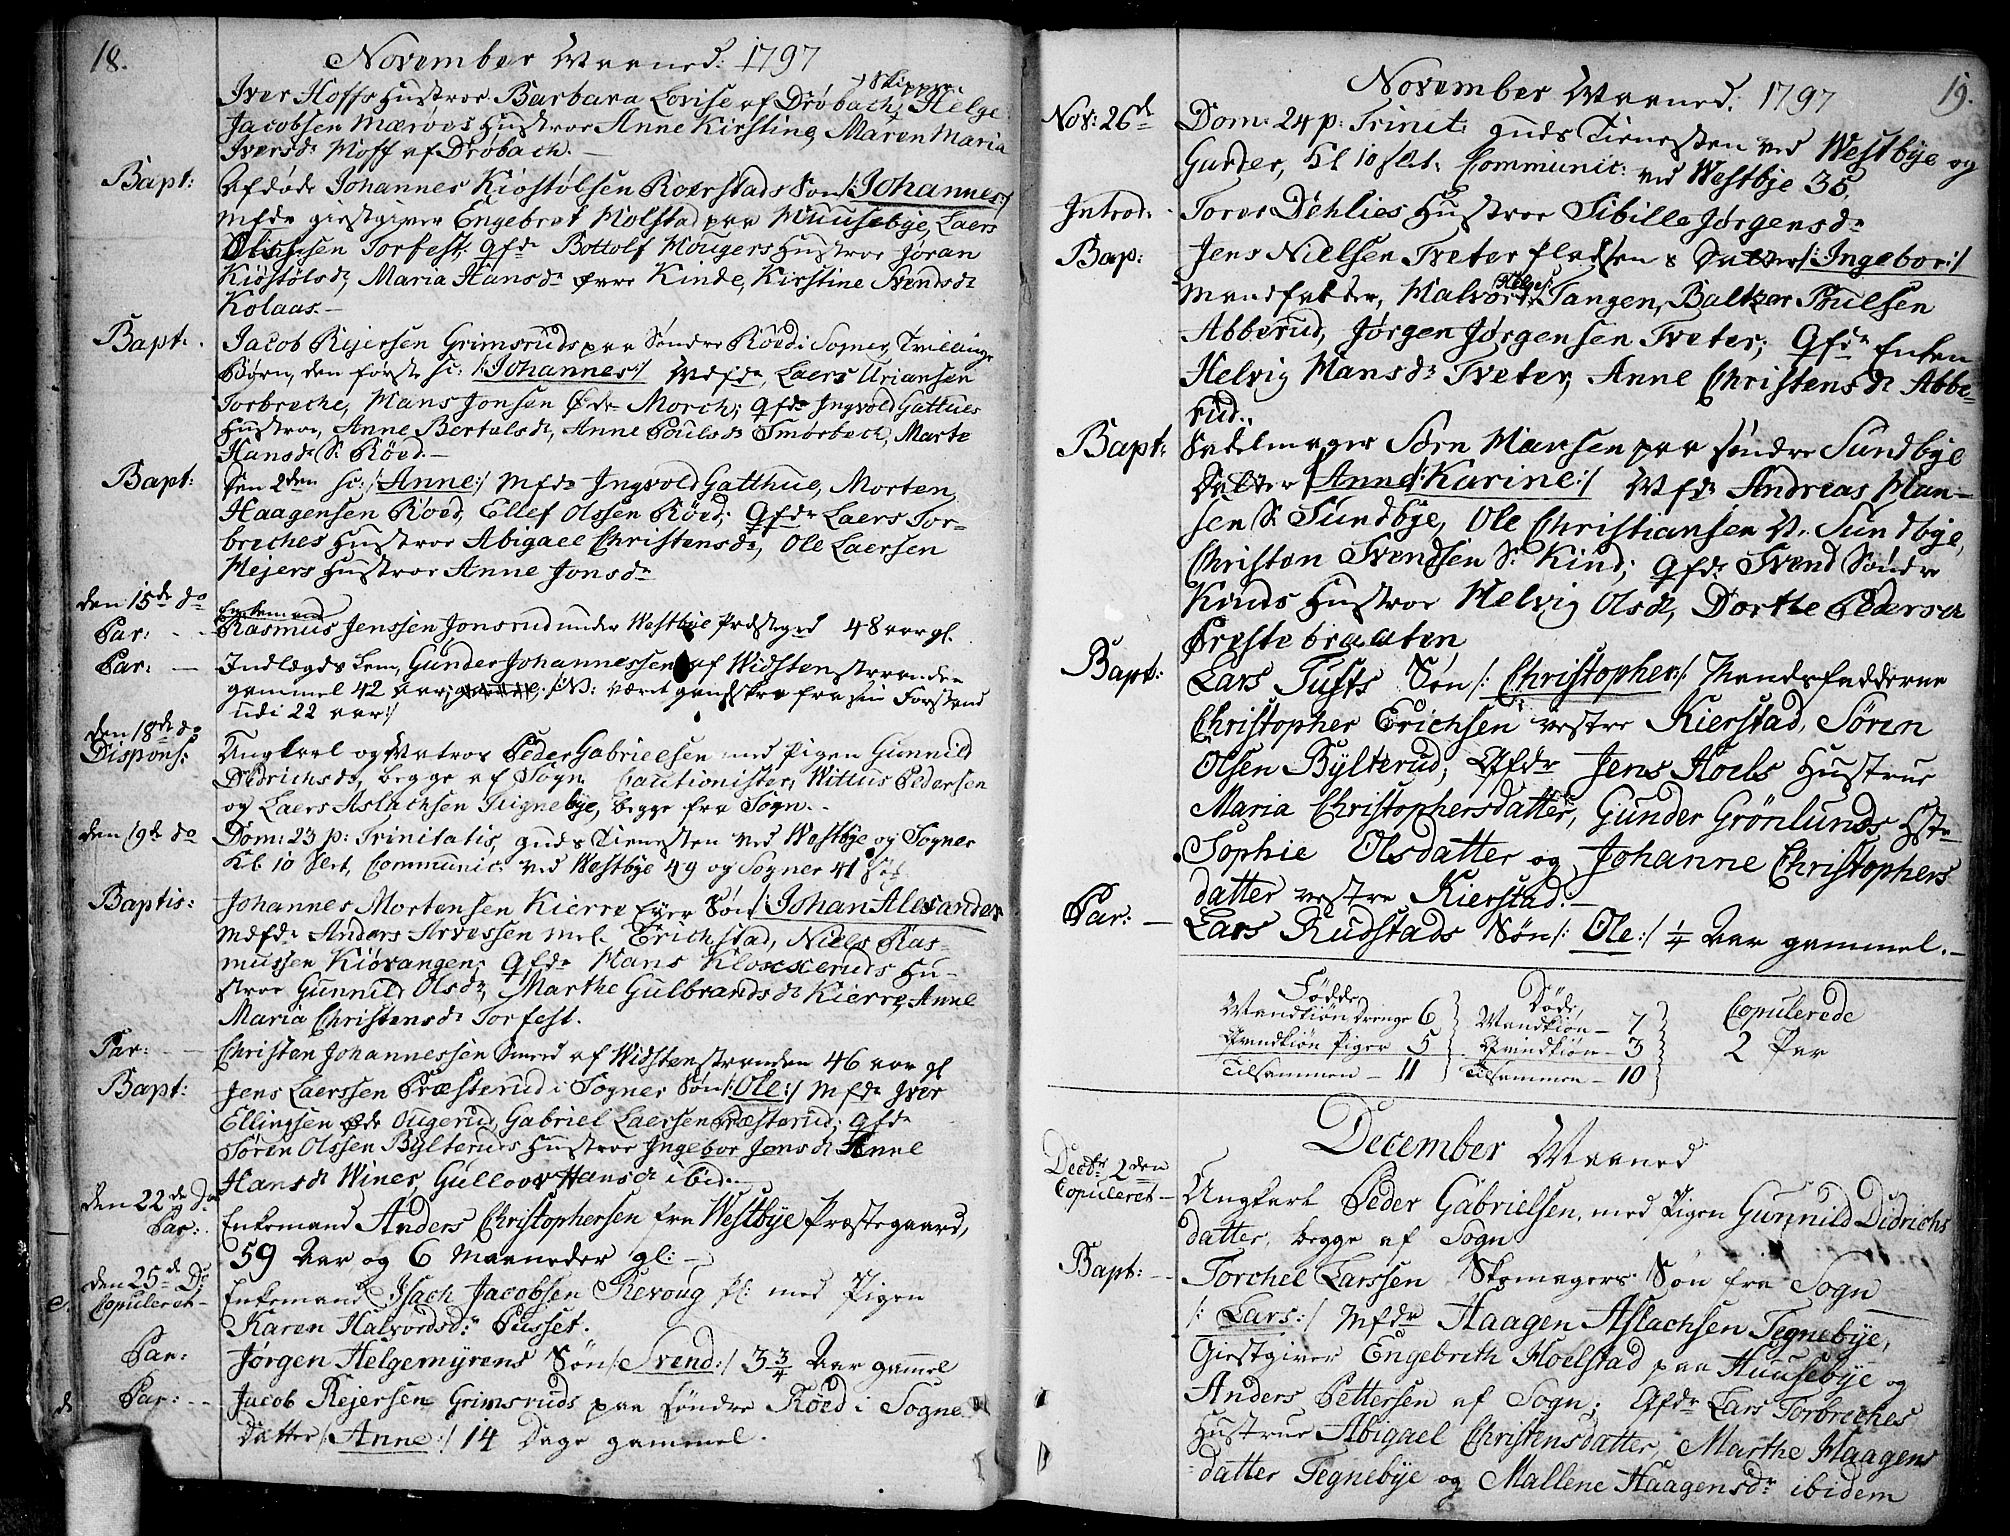 18.
November Maaned: 1797
Iver Hoffs Hustroe Barbara Lovise af Drøbach, Skipper Helge
Jacobsen Mærvos Hustroe Anne Kirstine, Maren Maria
Iversdr Hoff af Drøbach.
Bapt: Afdøde Johannes Kiøstølsen Roerstads Søn /:Johannes:/
Mfdr giestgiver Engebret Holstad paa Huusebye, Laers
Olssen Torfest; Qfdr Bottolf Hougers Hustroe Jøran
Kiøstølsdr, Maria Hansdr fra Kinde, Kirstine Svendsdr
Kolaas.
Bapt: Jacob Rejersen Grimsruds paa Søndre Røed i Sogner Tvillinge
Børn, den første sc: /:Johannes:/ Mfdr, Laers Uriansen
Torbreche, Hans Jonsen Øde Morch; Qfdr Ingvold Gatthues
Hustroe, Anne Bertelsdr, Anne Poulsdr Smørbech, Marte
Hansdr S: Røed.
Bapt: Den 2den sc: /:Anne:/ Mfdr Ingvold Gatthue, Morten
Haagensen Røed, Ellef Olssen Røed; Qfdr Laers Tor-
breches Hustroe Abigael Christensdr, Ole Laersen
Mejers Hustroe Anne Jonsdr
den 15de do
Par: Enkemand Rasmus Jenssen Jonsrud under Westbye Præstegrd 48 aar gl.
Par: Indlægds Lem, Gunder Johannessen af Widstenstranden
gammel 42 aar, /:NB: været gandske fra sin Forstand
udi 22 aar:/
den 18de do
Dispens: Ungkarl og Matros Peder Gabrielsen med Pigen Gunnild
Didrichsdr, begge af Sogn. Cautionister, Witius Pedersen
og Laers Aslachsen Teignebye, begge fra Sogn.
den 19de do Dom: 23 p: Trinitatis, guds Tienesten ved Westbye og Sogner
Kl: 10 slet, Communic: ved Westbye 49 og Sogner 41
Baptis: Johannes Mortensen Kierre Eyer Søn /:Johan Alexander
Mdfdr Anders Arvessen mel. Erichstad, Niels Ras-
mussen Kiøvangen; Qfdr Hans Kloxeruds Hu-
stroe Gunnild Olsdr, Marthe Gulbrandsdr Kierre, Anne
Maria Christensdr Torfest.
Par: Christen Johannessen Smed af Widstenstranden 46 aar gl
Bapt: Jens Laerssen Præsterud i Sogner Søn /:Ole:/ Mfdr Iver
Ellingsen Øde Ougerud, Gabriel Laersen Præsterud; Qfdr
Søren Olssen Bylteruds Hustroe Ingebor Jensdr Anne
Hansdr Winer, Gullouv Hansdr ibid.
den 22de Do
Par: Enkemand Anders Christophersen fra Westbye Præstegaard,
59 Aar og 6 Maaneder gl:
den 25de Do
Copuleret Enkemand Isach Jacobsen Revoug pl: med Pigen
Karen Halvordsdr Pusset.
Par: Jørgen Helgemyrens Søn /:Svend:/ 3 3/4 Aar gammel
Par: Jacob Rejersen Grimsruds paa søndre Røed i Sogne
Datter /:Anne:/ 14 Dage gammel.
November Maaned: 1797
19.
Nov: 26de Dom: 24 p: Trinit: guds Tienesten ved Westbye og
Garder, Kl 10 slet. Communic: ved Westbye 35,
Introd: Tores Dehlies Hustroe Sibille Jørgensdr
Bap: Jens Nielsen Tveter pladsen s Datter /:Ingebor:/
Mandfadder, Halvord Helges: Tangen, Baltzer Poulsen
Abberud, Jørgen Jørgensen Tveter; Qfdr Enken
Helvig Hansdr Tveter, Anne Christensdr Abbe-
rud.
Bapt: Sadelmager Sørn Hansen paa søndre Sundbye
Datter /:Anne Karine:/ Mfdr Andreas Han-
sen S: Sundbye, Ole Christiansen N. Sundbye,
Christen Svendsen S: Kind; Qfdr Svend Søndre
Kinds Hustroe Helvig Olsdr, Dorthe Pedersdr
Prestebraaten
Bapt: Lars Tufts Søn /:Christopher:/ Mandsfadderne
Christopher Erichsen vestre Kierstad, Søren
Olsen Bylterud; Qfdr Jens Hoels Hustrue
Maria Christophersdatter, Gunder Grönlunds Hste-
Sophie Olsdatter og Johanne Christophers
datter vestre Kierstad.
Par: Lars Rudstads Søn /:Ole:/ 1/4 Aar gammel.
Fødde Døde, Copulerede
Mandkiøn Drenge 6 Mandkiøn 7 2 Par
Qvindkiøn Piger 5 Qvindkiøn 3
Tilsammen 11 Tilsammen 10
December Maaned
Decbr 2den
Copuleret Ungkarl Peder Gabrielsen, med Pigen Gunnild Didrichs
datter, begge af Sogn
Bapt: Torchel Larssen Skomagers Søn fra Sogn
/:Lars:/ Mfdr Haagen Aslachsen Tegnebye,
Giestgiver Engebreth Hoelstad paa Huusebye og
Anders Pettersen af Sogn; Qfdr Lars Torbreches
Hustrue Abigael Christensdatter, Marthe Haagens
datter Tegnebye og Mallene Haagensdr ibidem